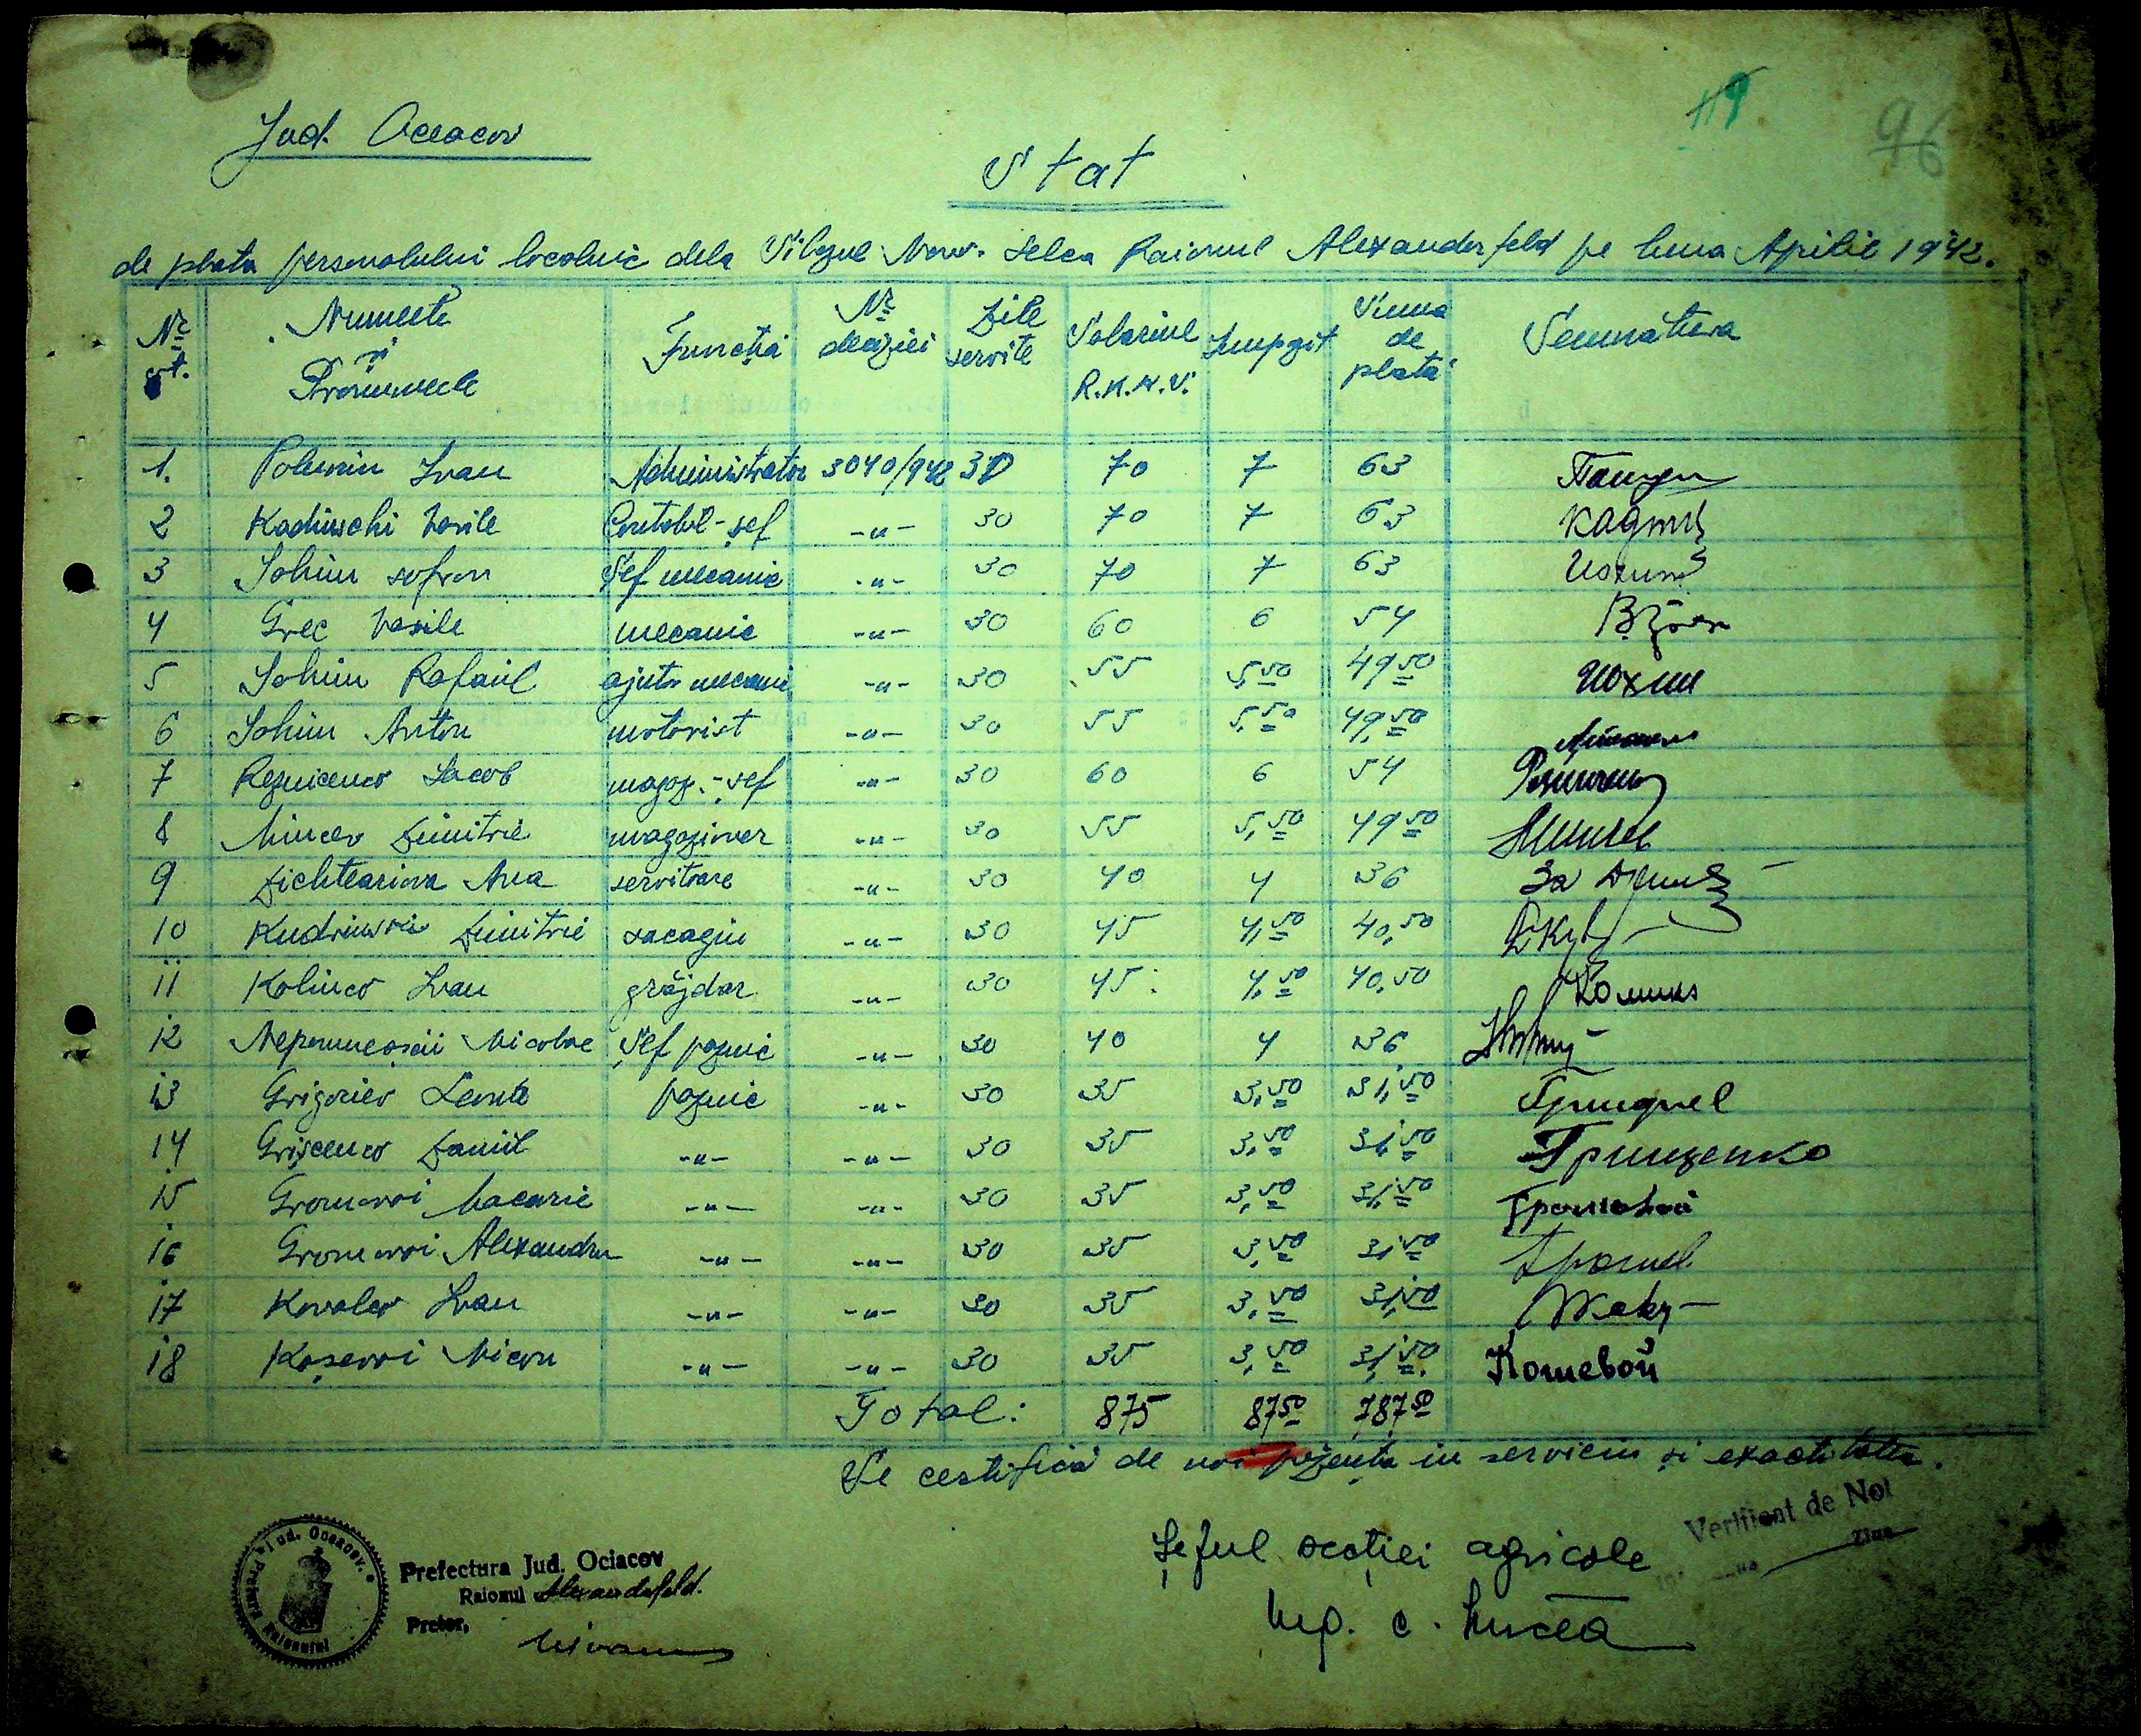 119
96
Jud. Oceacov
Stat
de plata personalului localnic dela Silozul Nov. Selca Raionul Alexanderfeld pe luna Aprilie 1942.
Nr. crt. Numele și Pronumele Funcția Nr. deciziei Zile servite Salariul R.K.K.S. Impozit Suma de plată Semnătura
1. Polumin Ivan Administrator 3040/942 30 70 7 63
2 Kadinschi Vasile Contabil-șef -"- 30 70 7 63
3 Iohim Sofron Șef mecanic -"- 30 70 7 63
4 Grec Vasile mecanic -"- 30 60 6 54
5 Iohim Rafail ajutor mecanic -"- 30 55 5,50 49,50 Иохим
6 Iohim Anton motorist -"- 30 55 5,50 49,50
7 Reznicenco Iacob magaz.-șef -"- 30 60 6 54
8 Mincev Dimitrie magaziner -"- 30 55 5,50 49,50
9 Dichteariova Ana servitoare -"- 30 40 4 36
10 Kudrinschi Dimitrie sacagiu -"- 30 45 4,50 40,50
11 Kolinco Ivan grăjdar -"- 30 45 4,50 40,50
12 Nepomneașcii Nicolae Șef paznic -"- 30 40 4 36
13 Grigoriev Leonte paznic -"- 30 35 3,50 31,50
14 Grișcenco Daniil -"- -"- 30 35 3,50 31,50 Грищенко
15 Gromovoi Macarie -"- -"- 30 35 3,50 31,50 Громовой
16 Gromovoi Alexandru -"- -"- 30 35 3,50 31,50
17 Kovalev Ivan -"- -"- 30 35 3,50 31,50
18 Koșevoi Nicon -"- -"- 30 35 3,50 31,50 Кошевой
Total: 875 87,50 787,50
Se certifică de noi prezența în serviciu și exactitatea.
Verificat de Noi
Ziua
Șeful secției agricole
Ing. C.
Prefectura Jud. Ociacov
Raionul Alexanderfeld.
Pretor,
Jud. Oceacov. Pretura Raionului